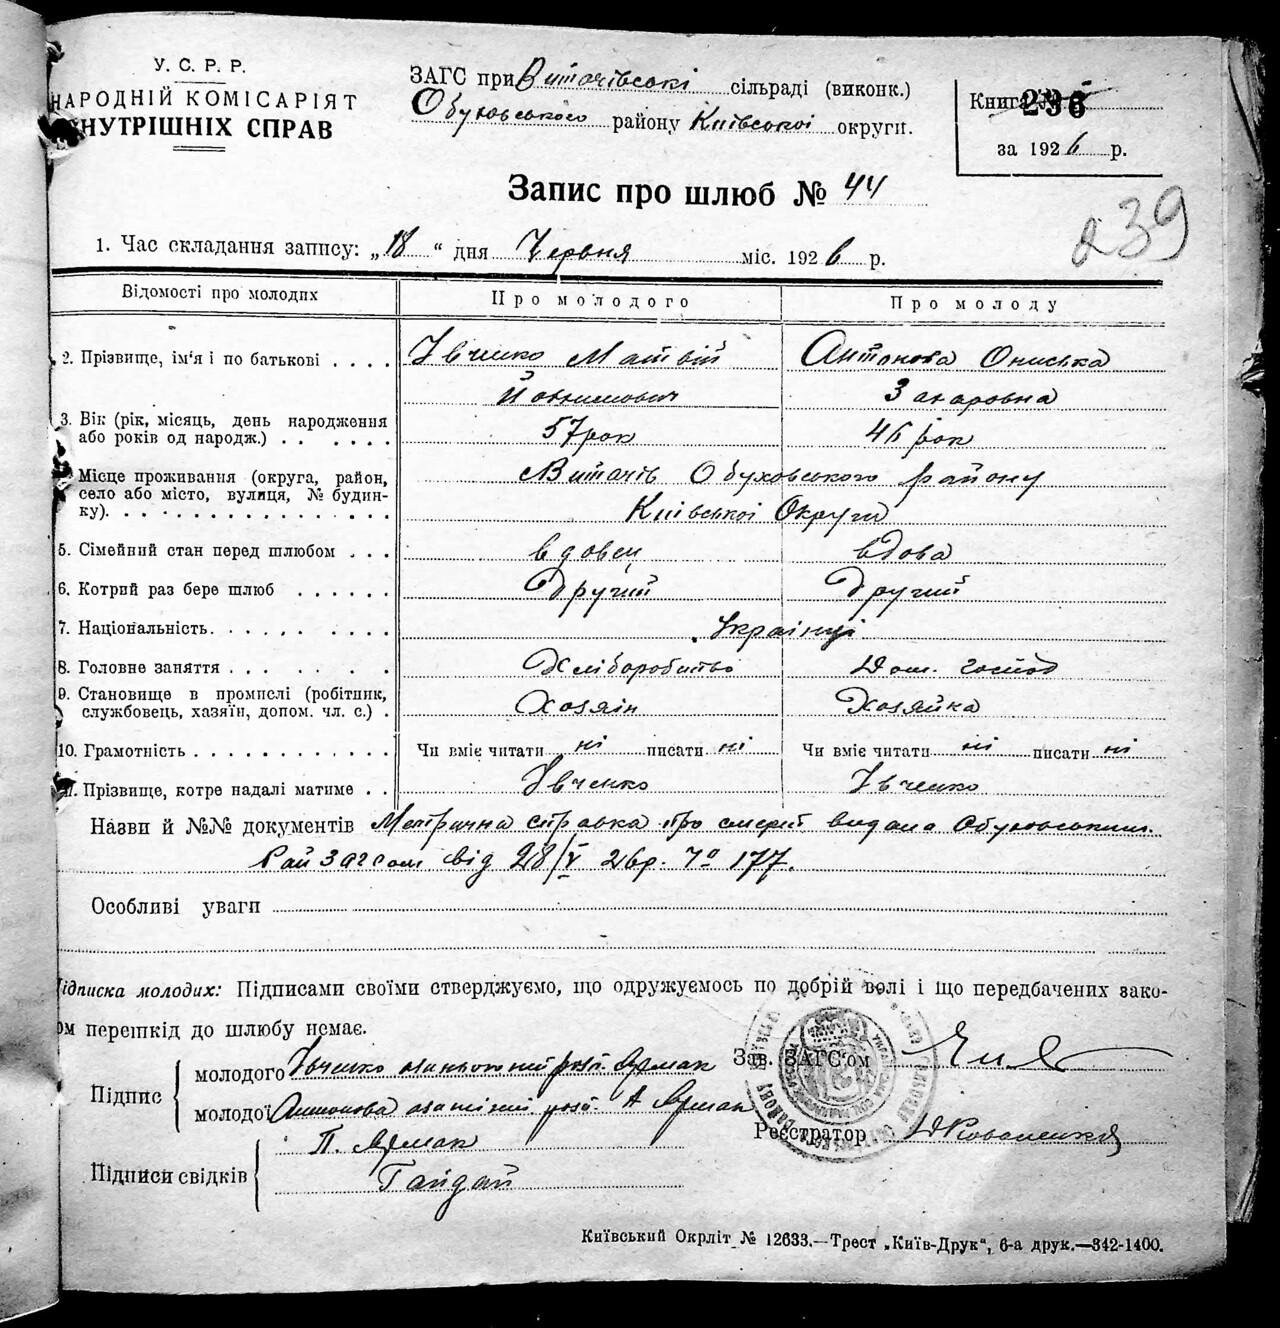 У. С. Р. Р.
НАРОДНІЙ КОМІСАРІЯТ
ВНУТРІШНІХ СПРАВ
ЗАГС при Витачівські сільраді (виконк.)
Обуховського району Київської округи.
Книга № 236
за 1926 р.
Запис про шлюб № 44
239
1. Час складання запису: „18“ дня Червня міс. 1926 р.
Відомості про молодих Про молодого Про молоду
2. Прізвище, ім'я і по батькові . . . . Івченко Матвій Антонова Ониська
Йоакимович Захаровна
3. Вік (рік, місяць, день народження
або років од народж.) . . . . . . 57 рок 46 рок
Місце проживання (округа, район,
село або місто, вулиця, № будин-
ку). Витачів Обуховського району
Київської Округи
5. Сімейний стан перед шлюбом . . . вдовец вдова
6. Котрий раз бере шлюб . . . . . . Другий Другий
7. Національність. Українці
8. Головне заняття Хліборобитво Дом. господ
9. Становище в промислі (робітник,
службовець, хазяїн, допом. чл. с.) . Хозяін Хозяйка
10. Грамотність Чи вміє читати ні писати ні Чи вміє читати ні писати ні
11. Прізвище, котре надалі матиме . . Івченко Івченко
Назви й №№ документів Метрична справка про смерть видана Обуховським
Рай Загсом від 28/V 26 р. № 177.
Особливі уваги
Підписка молодих: Підписами своїми стверджуємо, що одружуємось по добрій волі і що передбачених зако-
ом перешкід до шлюбу немає.
Підпис
молодого Івченко Ярмак
молодої Антонова А Ярмак
Зав. ЗАГС'ом
Реєстратор Д Коваленко
Підписи свідків
П. Ярмак
Гайдай
Київський Окрліт № 12633.—Трест „Київ-Друк“, 6-а друк.—342-1400.